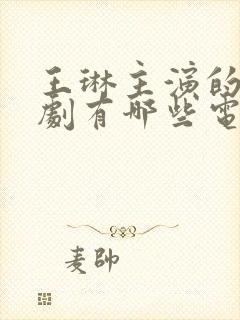 王琳主演的
劇有哪些電
麦帥